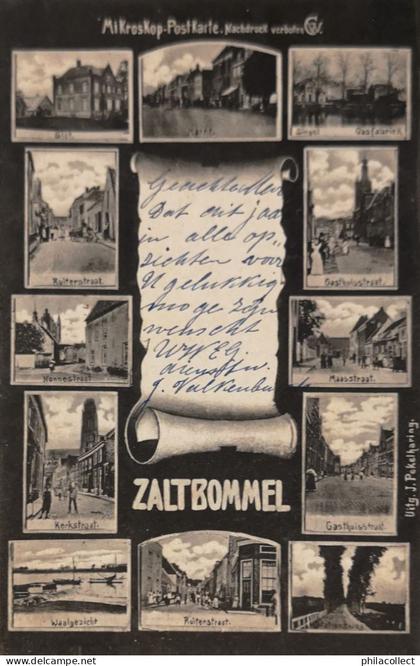 Mikroskop-Postkarte. Nachdruck verboten GW.
Markt.
Singel Gasfabriek
Ruiterstraat.
Gasthuisstraat.
Nonnestraat.
Maasstraat.
Kerkstraat.
Gasthuisstraat.
Waalgezicht
Ruiterstraat.
Geachte
Dat dit jaar
in alle op„
zichten voor
U gelukkig
moge zijn
wenscht
UWEG.
dienstw.
J. Valkenburg
ZALTBOMMEL
Uitg. J. Pekelharing.
© www.philacollect.delcampe.net
philacollect